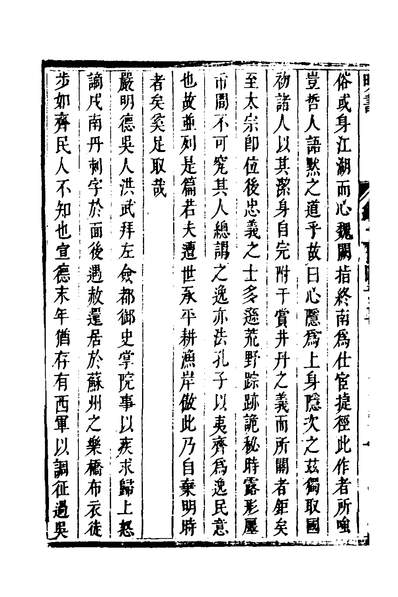 俗或身江湖而心魏闕指終南爲仕宦捷徑此作者所嗤
豈哲人語黙之道乎故曰心隱爲上身隱次之茲獨取國
初諸人以其潔身自完附于賞井丹之義而所關者鉅矣
至太宗卽位後忠義之士多遯荒野踪跡詭秘時露形屢
市間不可究其人總謂之逸亦法孔子以夷齊爲逸民意
也故並列是篇若夫遭世承平耕漁岸傲此乃自棄明時
者矣奚足取哉
嚴明德吳人洪武拜左僉都御史掌院事以疾求歸上怒
謫戍南丹刺字於面後遇赦還居於蘇州之樂橋布衣徒
步如齊民人不知也宣德末年猶存有西軍以調征過吳